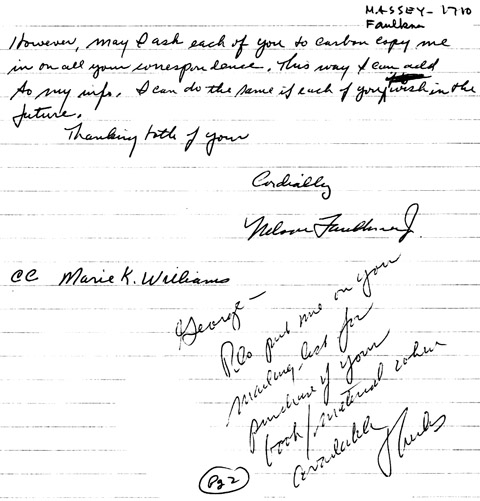 MASSEY - 1710
Faulkner
However, may I ask each of you to carbon copy me
in on all your correspondence. This way I can add
to my info. I can do the same if each of you wish in the
future.
Thanking both of your
Cordially
Nelson Faulkner Jr.
CC Marie K. Williams
George -
Pls put me on your
mailing list for
purchase of your
book/material when
available
Thanks
Pg 2